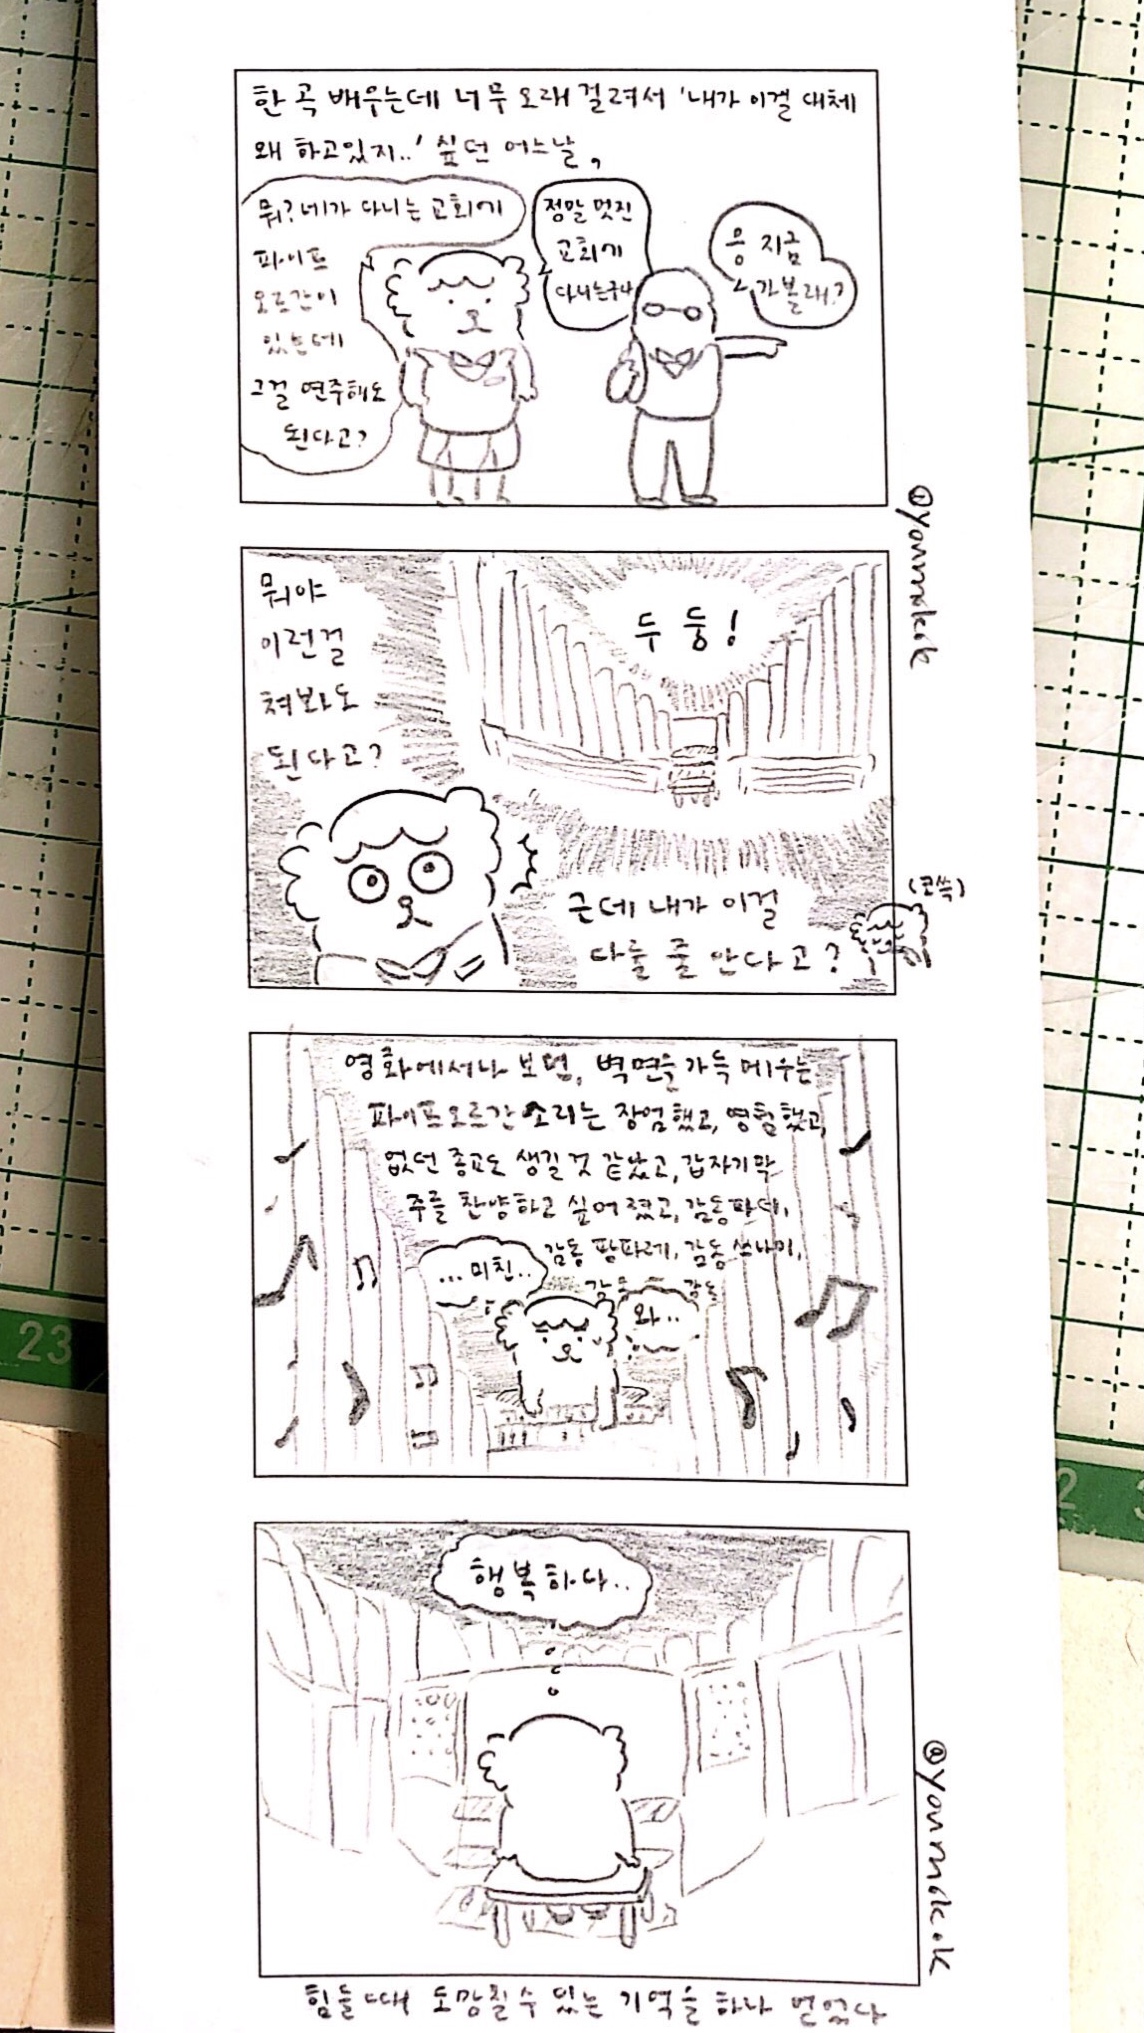 한 곡 배우는데 너무 오래 걸려서 '내가 이걸 대체
왜 하고있지..' 싶던 어느날,
뭐? 네가 다니는 교회에
파이프
오르간이
있는데
그걸 연주해도
된다고?
정말 멋진
교회에
다니는구나
응 지금
가볼래?
@yonmok.k
뭐야
이런걸
쳐봐도
된다고?
두둥!
근데 내가 이걸
다룰 줄 안다고?
(코쓱)
영화에서나 보던, 벽면을 가득 메우는
파이프오르간 소리는 장엄했고, 영험했고,
없던 종교도 생길 것 같았고, 갑자기 막
주를 찬양하고 싶어졌고, 감동파티,
감동 팡파레, 감동 쓰나미,
감동 감동
...미친..
와..
행복하다..
@yonmok.k
힘들 때 도망칠 수 있는 기억을 하나 얻었다